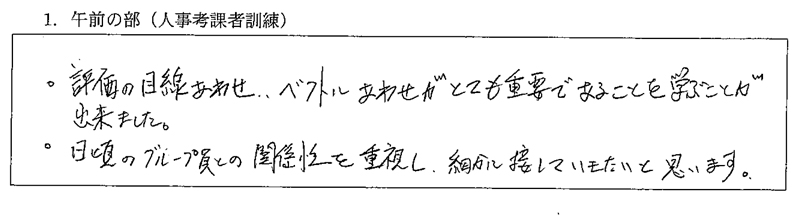 1. 午前の部（人事考課者訓練）
。評価の目線あわせ、ベクトルあわせがとても重要であることを学ぶことが
出来ました。
。日頃のグループ員との関係性を重視し、細かに接していきたいと思います。